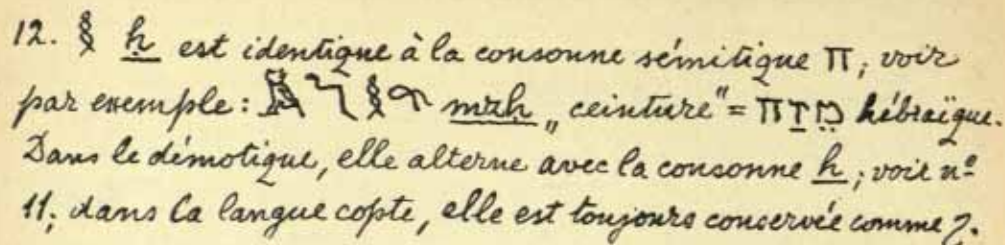 12. 𓎛 ḥ est identique à la consonne sémitique ח; voir
par exemple: mzḥ „ceinture" = מֵזַח hébraïque.
Dans le démotique, elle alterne avec la consonne h; voir nº
11; dans la langue copte, elle est toujours conservée comme ϩ.